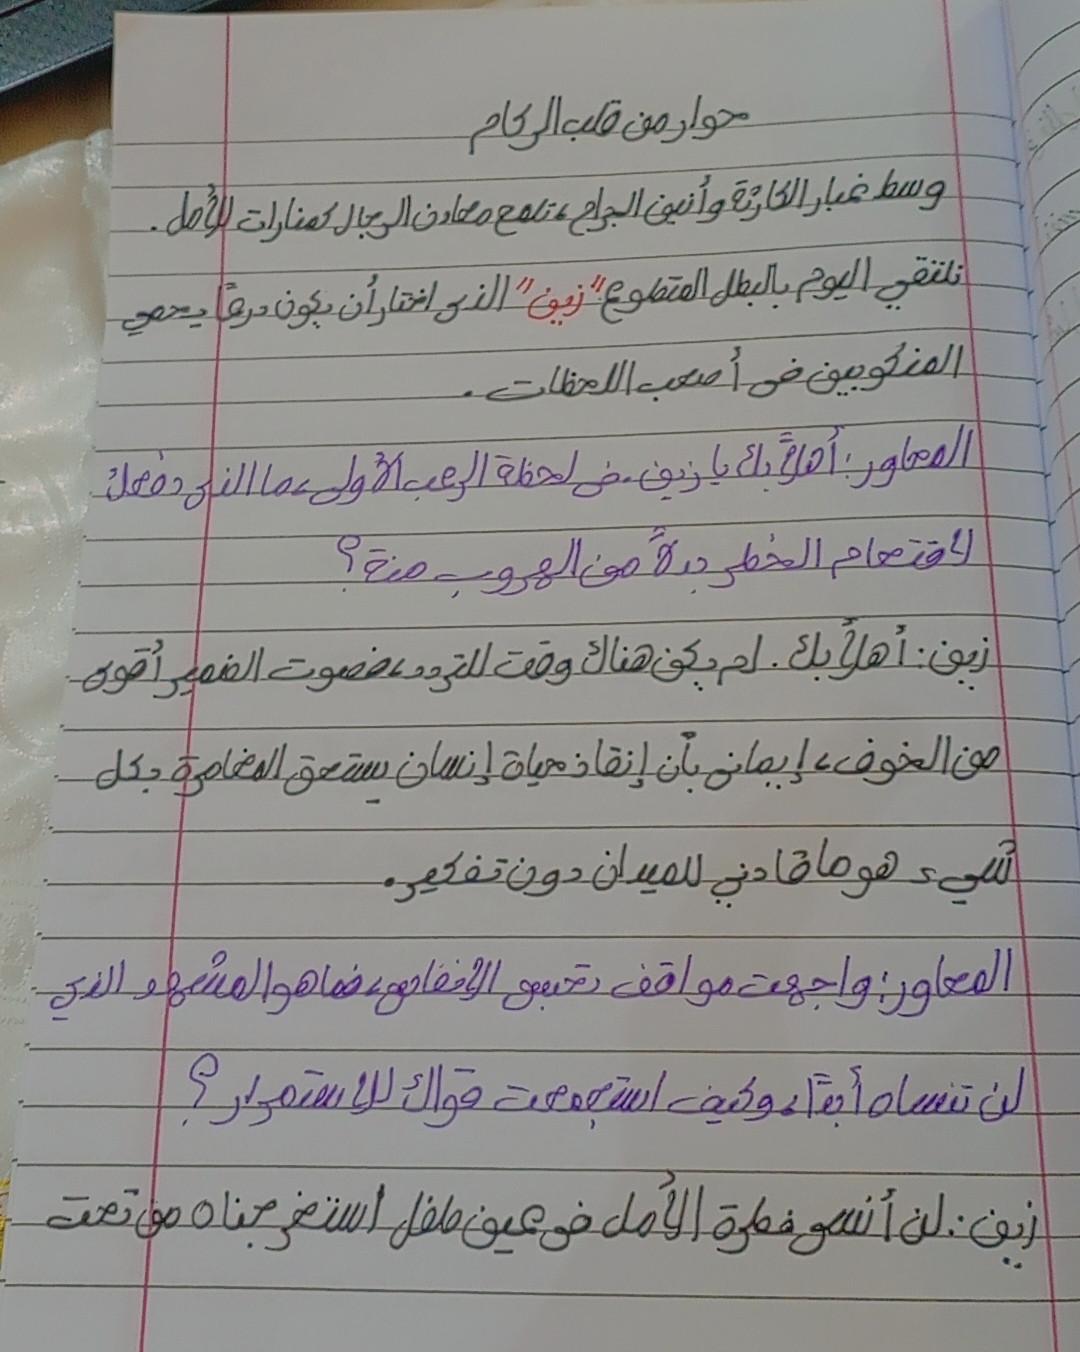 حوار من قلب الركام
وسط غبار الكارثة وأنين الجراح، تلمع معادن الرجال كمنارات للأمل.
نلتقي اليوم بالبطل المتطوع "زين" الذي اختار أن يكون درعًا يحمي
المنكوبين في أصعب اللحظات.
المحاور: أهلاً بك يا زين. في لحظة الرعب الأولى، ما الذي دفعك
لاقتحام الخطر بدلاً من الهروب منة؟
زين: أهلاً بك. لم يكن هناك وقت للتردد، فصوت الضمير أقوى
من الخوف، إيماني بأن إنقاذ حياة إنسان يستحق المغامرة بكل
شيء هو ما قادني للميدان دون تفكير.
المحاور: واجهت مواقف تحبس الأنفاس، فما هو المشهد الذي
لن تنساه أبدًا، وكيف استجمعت قواك للاستمرار؟
زين: لن أنسى نظرة الأمل في عين طفل استخرجناه من تحت